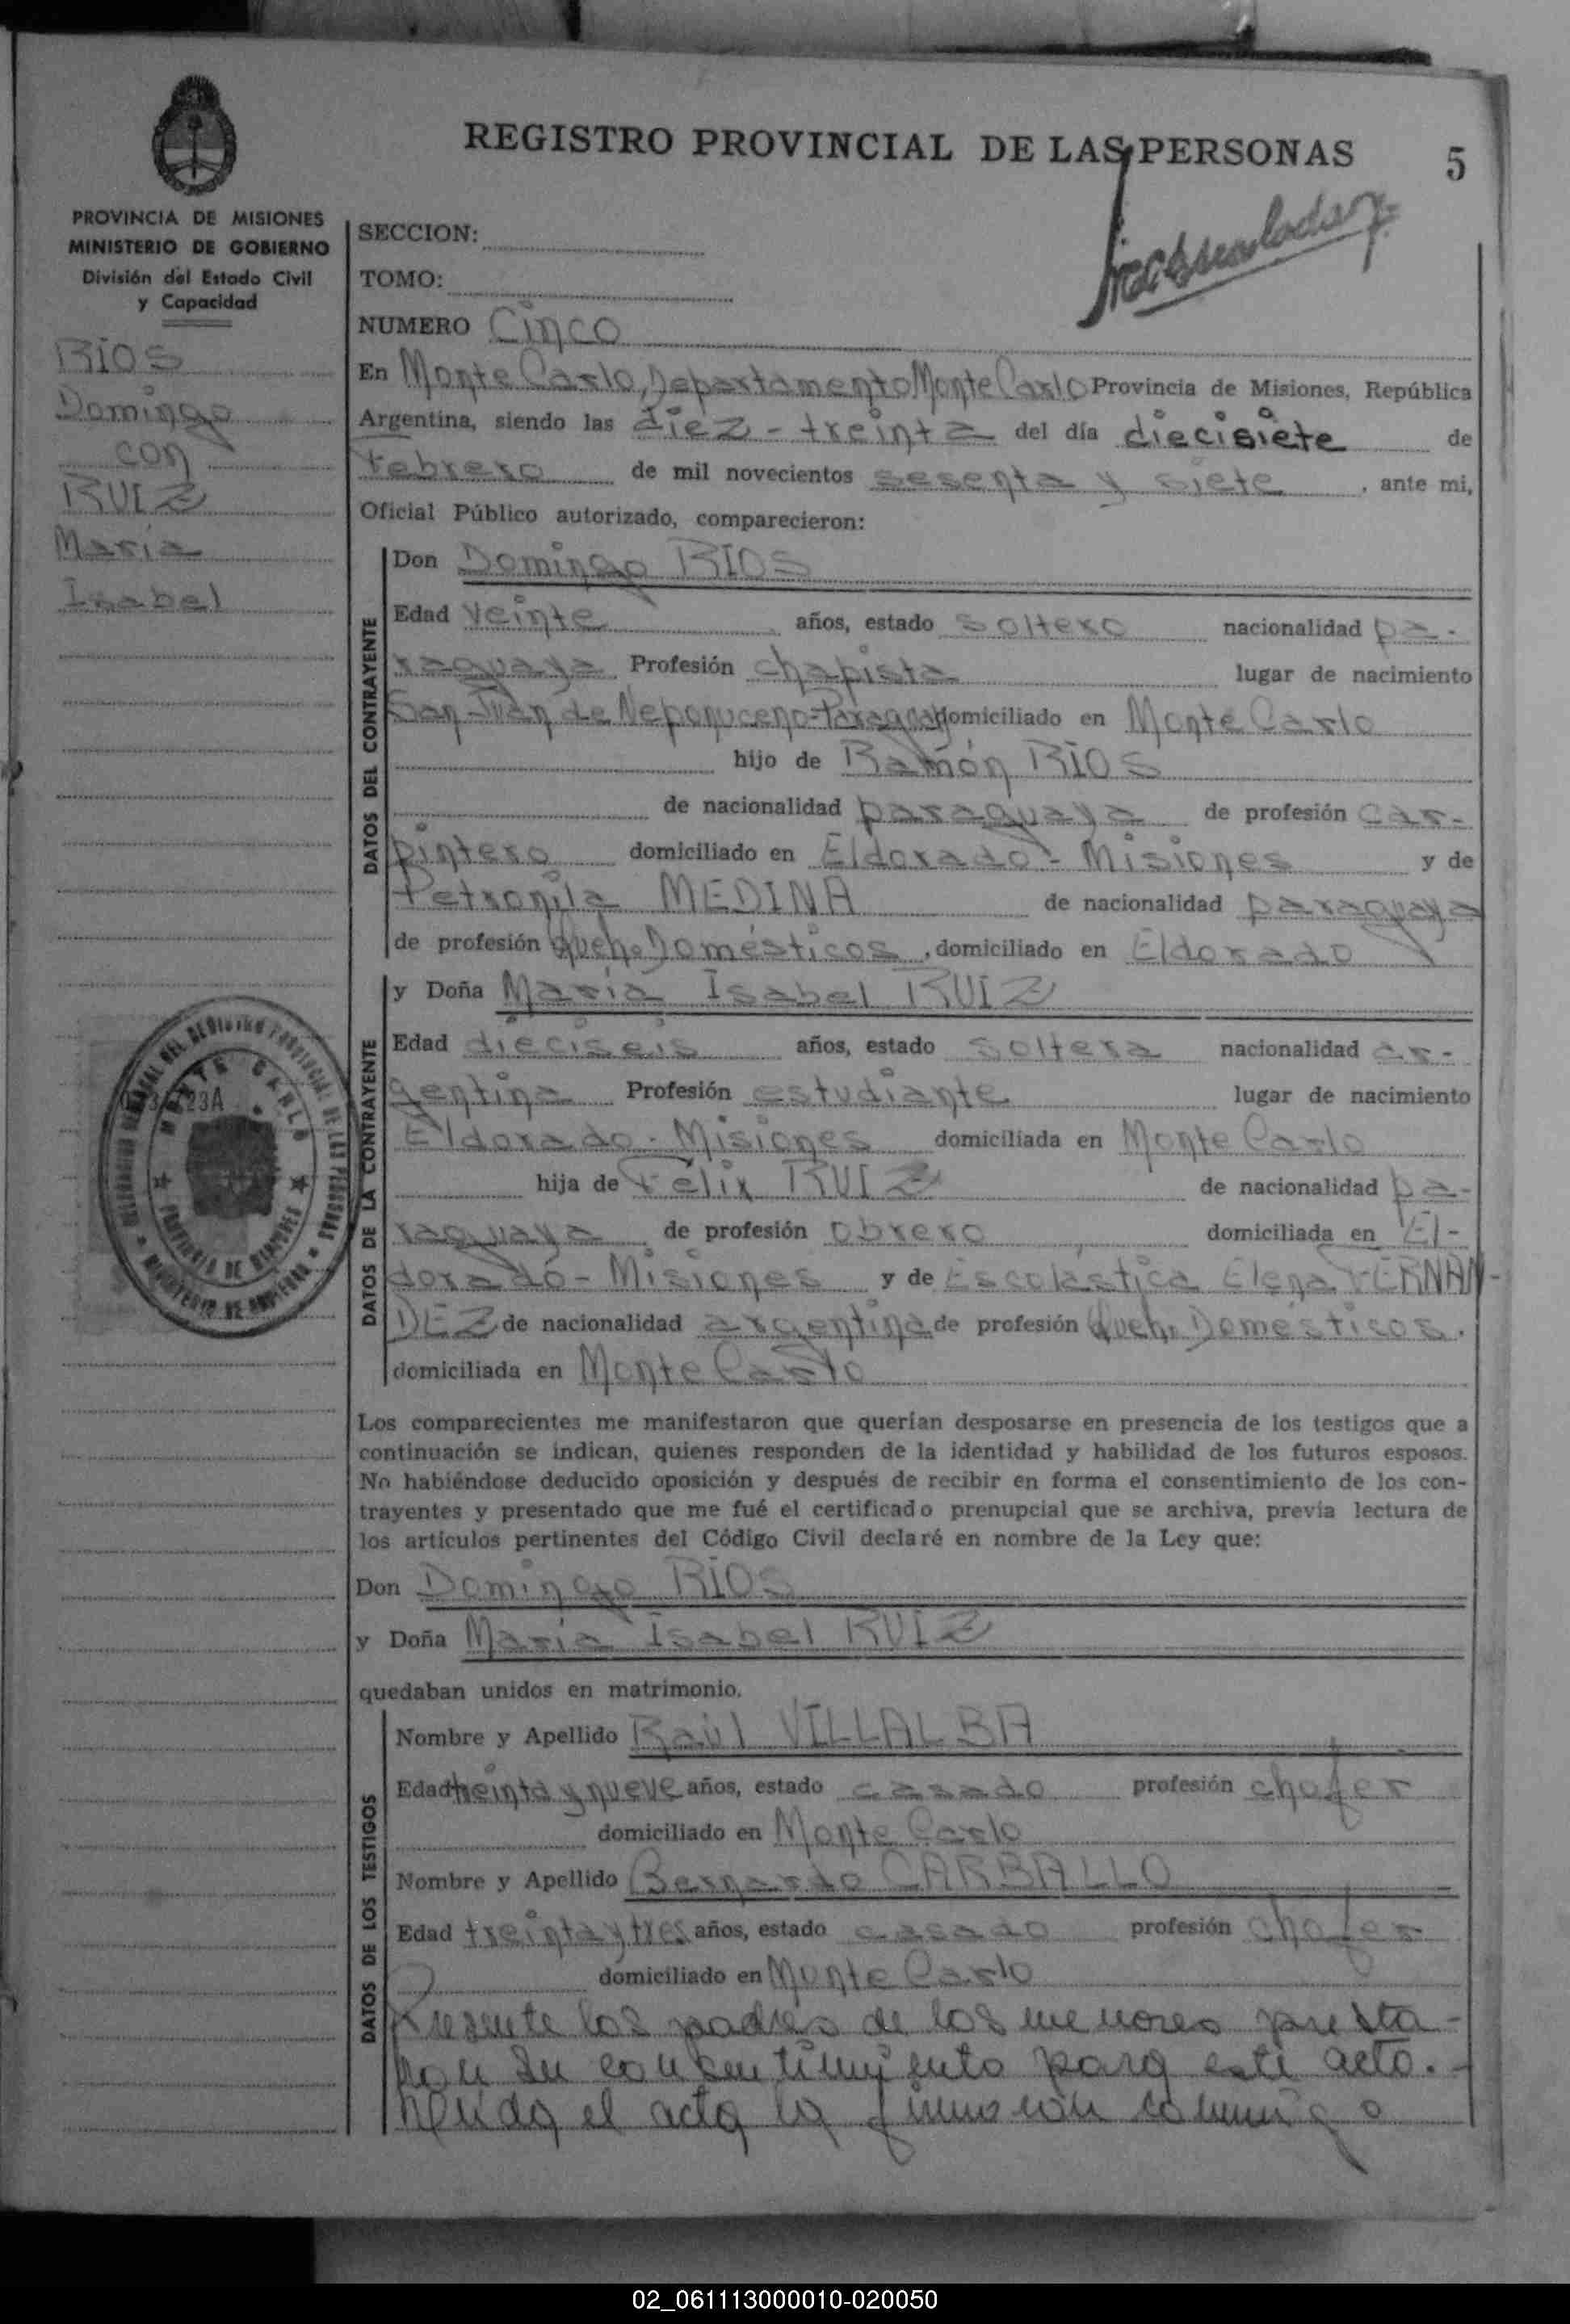 REGISTRO PROVINCIAL DE LAS PERSONAS
5
PROVINCIA DE MISIONES
MINISTERIO DE GOBIERNO
División del Estado Civil
y Capacidad
RÍOS
Domingo
con
RUIZ
María
Isabel
SECCION:
TOMO:
NUMERO Cinco
En Monte Carlo, Departamento Monte Carlo Provincia de Misiones, República
Argentina, siendo las diez - treinta del día diecisiete de
Febrero de mil novecientos sesenta y siete, ante mi,
Oficial Público autorizado, comparecieron:
DATOS DEL CONTRAYENTE
Don Domingo RÍOS
Edad veinte años, estado soltero nacionalidad pa-
raguaya Profesión chapista lugar de nacimiento
San Juan de Nepomuceno-Paraguay domiciliado en Monte Carlo
hijo de Ramón RÍOS
de nacionalidad paraguaya de profesión car-
pintero domiciliado en Eldorado - Misiones y de
Petronila MEDINA de nacionalidad paraguaya
de profesión Queh. Domésticos, domiciliado en Eldorado
DATOS DE LA CONTRAYENTE
y Doña María Isabel RUIZ
Edad dieciseis años, estado soltera nacionalidad ar-
gentina Profesión estudiante lugar de nacimiento
Eldorado - Misiones domiciliada en Monte Carlo
hija de Félix RUIZ de nacionalidad pa-
raguaya de profesión obrero domiciliada en El-
dorado - Misiones y de Escolástica Elena FERNAN-
DEZ de nacionalidad argentina de profesión Queh. Domésticos.
domiciliada en Monte Carlo
MONTE CARLO
PROVINCIA DE MISIONES
23A
Los comparecientes me manifestaron que querían desposarse en presencia de los testigos que a
continuación se indican, quienes responden de la identidad y habilidad de los futuros esposos.
No habiéndose deducido oposición y después de recibir en forma el consentimiento de los con-
trayentes y presentado que me fué el certificado prenupcial que se archiva, previa lectura de
los artículos pertinentes del Código Civil declaré en nombre de la Ley que:
Don Domingo RÍOS
y Doña María Isabel RUIZ
quedaban unidos en matrimonio.
DATOS DE LOS TESTIGOS
Nombre y Apellido Raúl VILLALBA
Edad treinta y nueve años, estado casado profesión chofer
domiciliado en Monte Carlo
Nombre y Apellido Bernardo CARBALLO
Edad treinta y tres años, estado casado profesión chofer
domiciliado en Monte Carlo
Presente los padres de los menores presta-
ron su consentimiento para este acto.-
el acta la firmaron conmigo
02_061113000010-020050